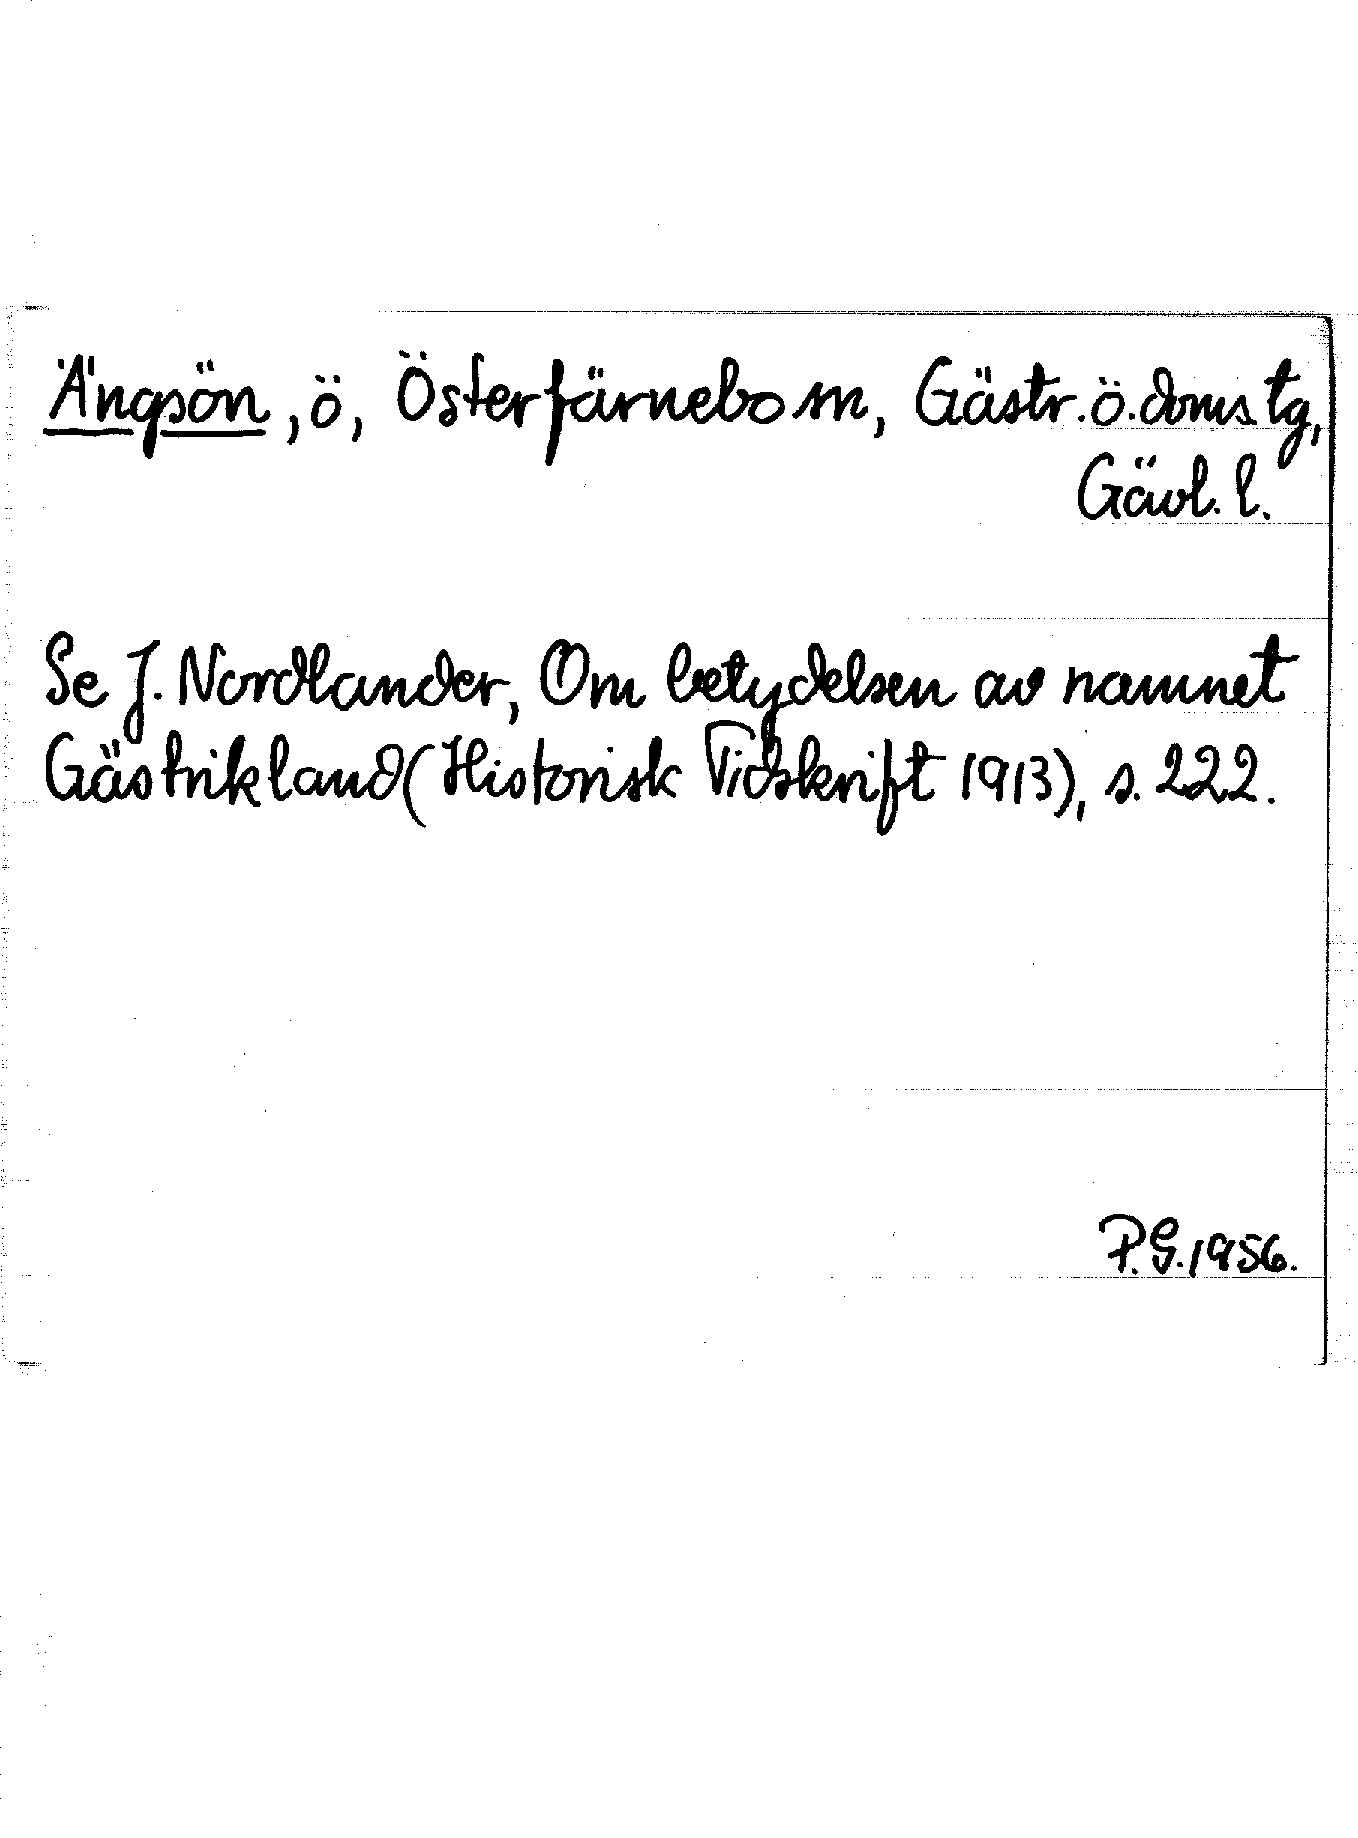 Ängsön, ö, Österfärnebo sn, Gästr. ö. doms. tg,
Gävl. l.
Se J. Nordlander, Om betydelsen av namnet
Gästrikland (Historisk Tidskrift 1913), s. 222.
P.G. 1956.